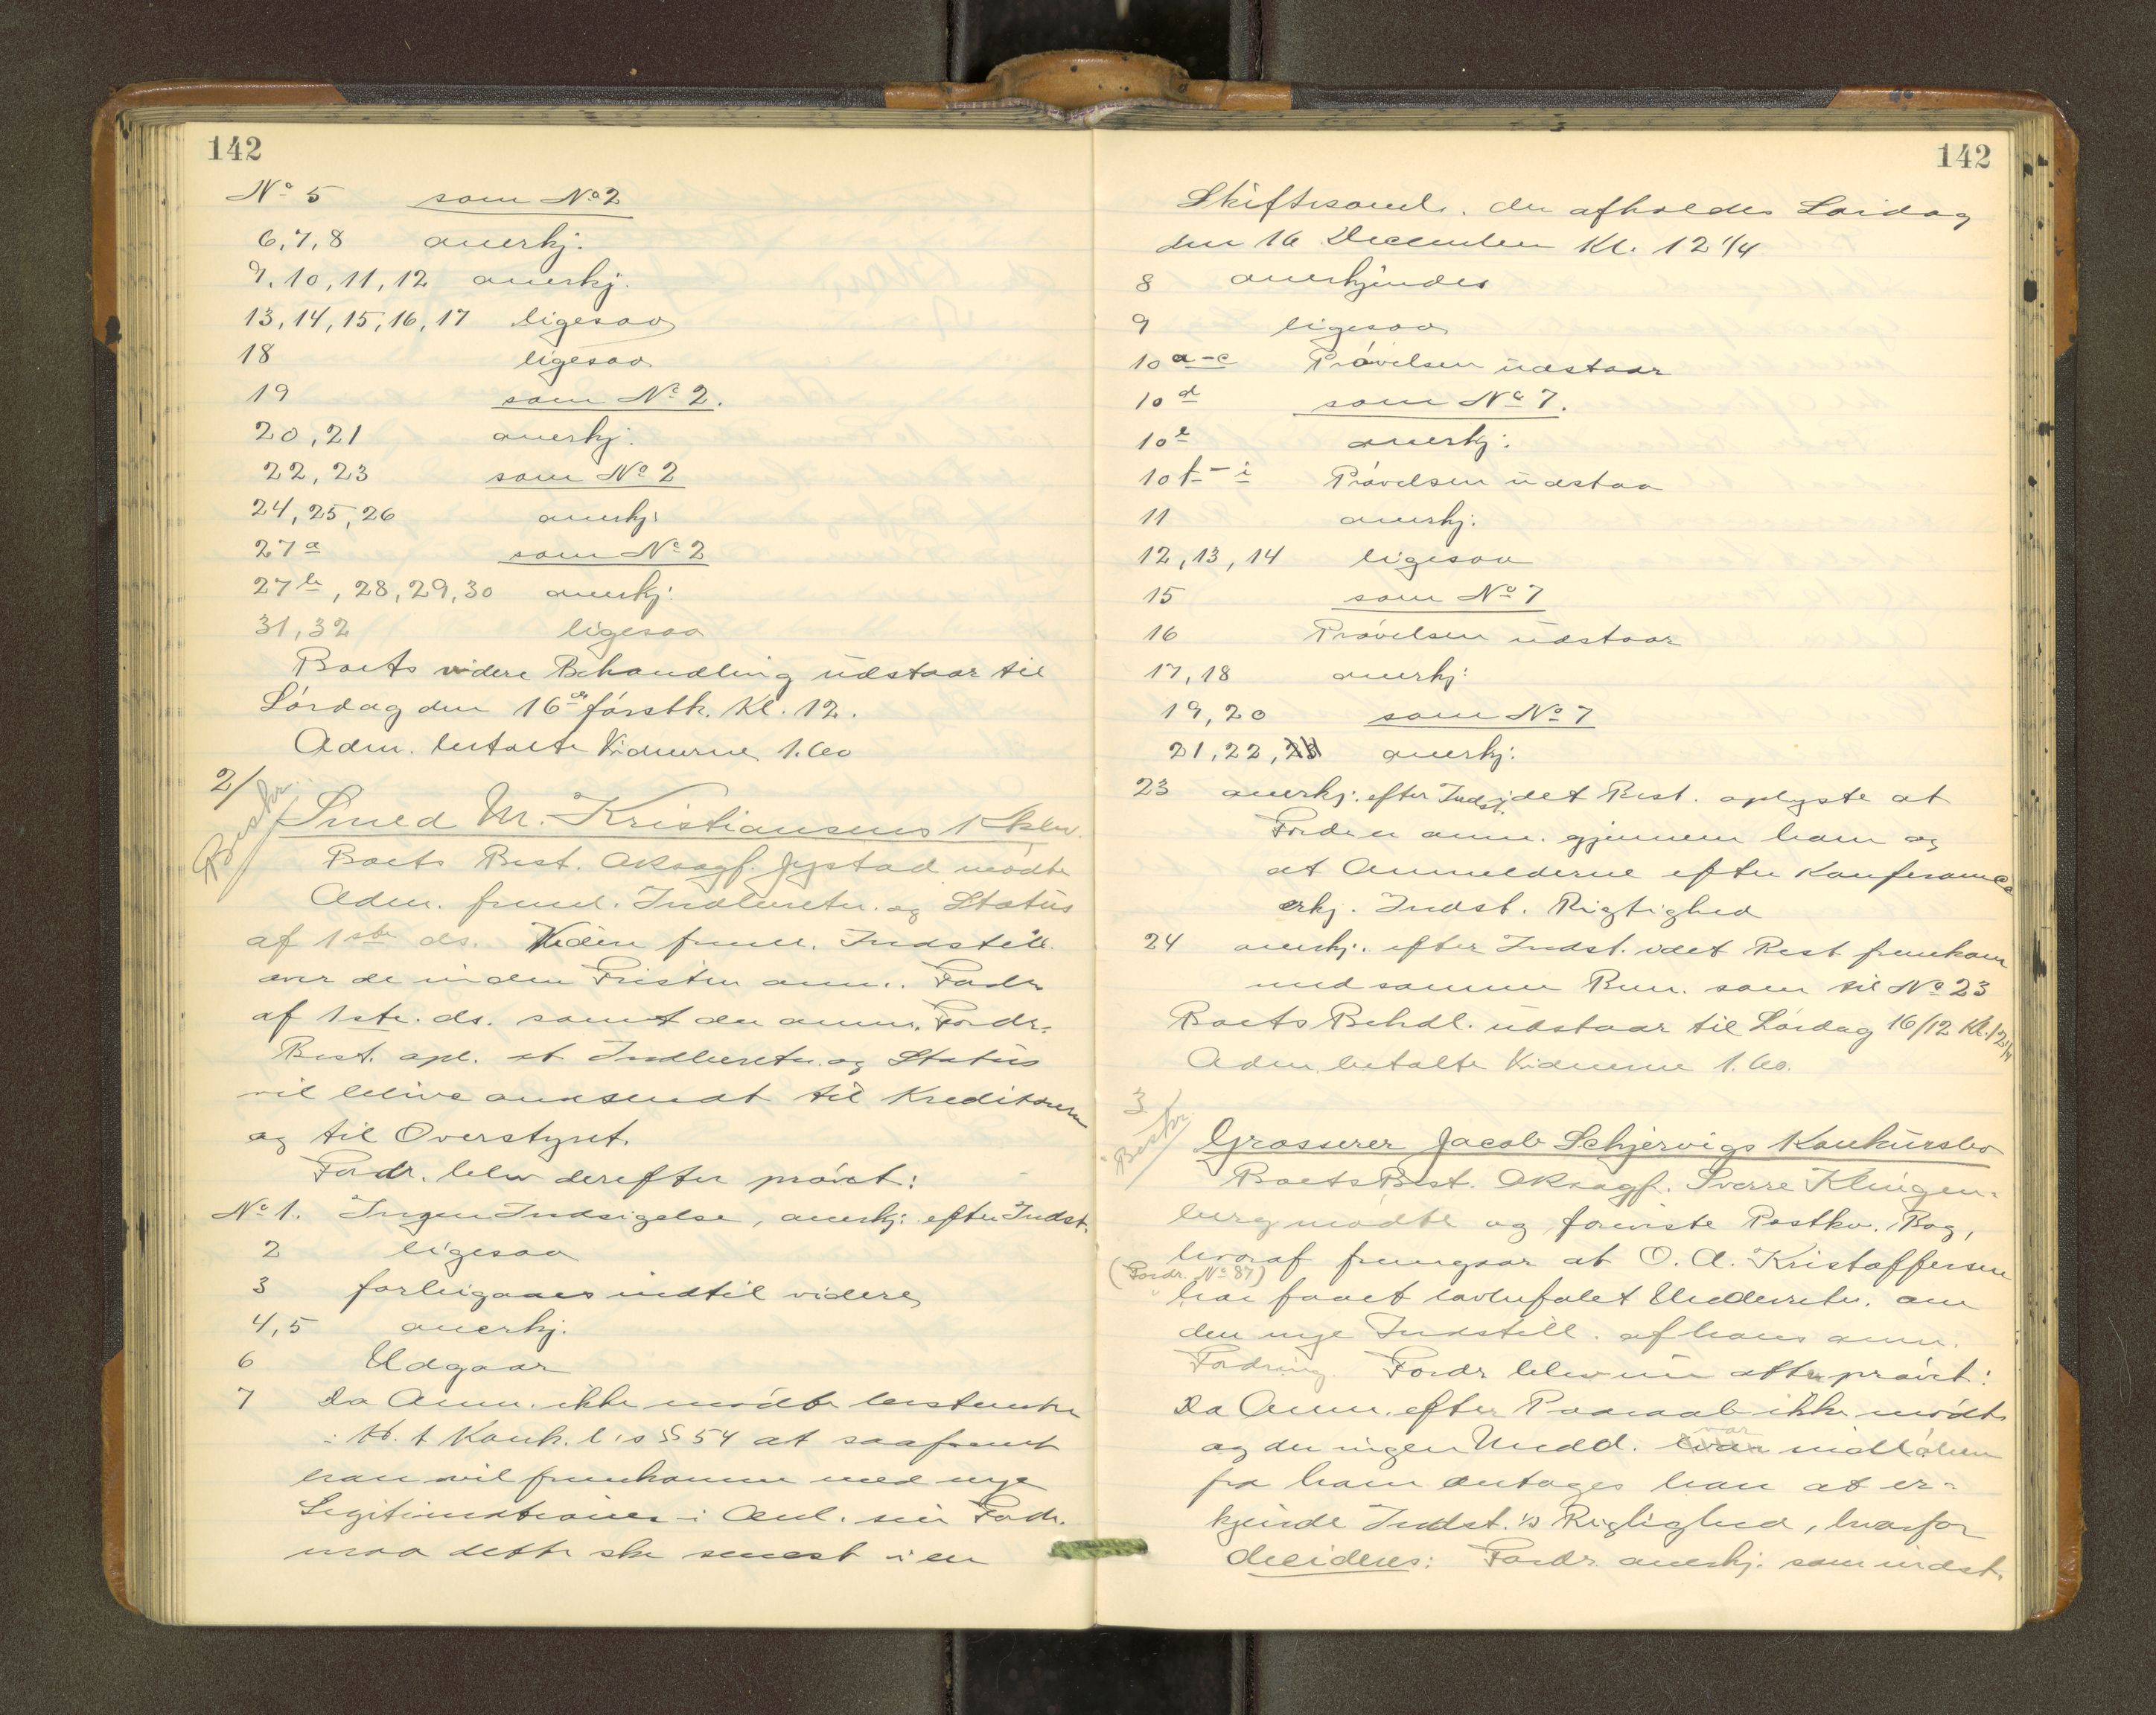 142
No 5 som No 2
6, 7, 8 anerkj.
9, 10, 11, 12 anerkj.
13, 14, 15, 16, 17 ligesaa
18 ligesaa
19 som No 2.
20, 21 anerkj.
22, 23 som No 2
24, 25, 26 anerkj:
27a som No 2
27b, 28, 29, 30 anerkj.
31, 32 ligesaa
Boets videre Behandling udstaar til
Lørdag den 16de førstk. Kl. 12.
Adm. betalte Vidnerne 1.60
2/
Beskr.
Smed M. Kristiansens Kkbo.
Boets Best. Oksagf. Jystad mødte
Adm. freml. Indberetn. og Status
af 1ste ds. Videre freml. Indstill.
over de inden Fristen anm. Fordr
af 1ste ds. samt den anm. Fordr.
Best. opl. at Indberetn. og Status
vil blive omsendt til Kreditorerne
og til Overstyret.
Fordr. blev derefter prøvet:
No 1. Ingen Indsigelse, anerkj. efter Indst.
2 ligesaa
3 forbigaaes indtil videre
4, 5 anerkj.
6 Udgaar
7 Da Anm. ikke mødte bestemtes
i H. t Konk. l's § 54 at saafremt
han vil fremkomme med nye
Legitimationer i Anl. sin Fordr.
maa dette ske senest i en
142
Skiftesaml. der afholdes Lørdag
den 16 December Kl. 12 1/4
8 anerkjendes
9 ligesaa
10 a-c Prøvelsen udstaar
10 d som No 7.
10 e anerkj.
10 f-i Prøvelsen udstaa
11 anerkj.
12, 13, 14 ligesaa
15 som No 7
16 Prøvelsen udstaar
17, 18 anerkj:
19, 20 som No 7
21, 22, 23 anerkj:
23 anerkj. efter Indst. idet Best. oplyste at
Fordr er anm. gjennem ham og
at Anmelderne efter Konferance
erkj. Indst. Rigtighed
24 anerkj. efter Indst. idet Best fremkom
med samme Bem. som til No 23
Boets Behdl. udstaar til Lørdag 16/12 Kl. 12 1/4
Adm. betalte Vidnerne 1.60.
3
Beskr.
Grosserer Jacob Schjervigs Konkursbo
Boets Best. Oksagf. Sverre Klingen-
berg mødte og foreviste Postkv. Bog,
hvoraf fremgaar at O. A. Kristoffersen
(Fordr. No 87)
har faaet lovbefalet Underretn. om
den nye Indstill. af hans anm.
Fordring. Fordr blev nu atter prøvet:
Da Anm. efter Paaraab ikke mødte
og der ingen Medd. var indløben
fra ham antages han at er-
kjende Indst.'s Rigtighed, hvorfor
decideres: Fordr. anerkj. som indst.